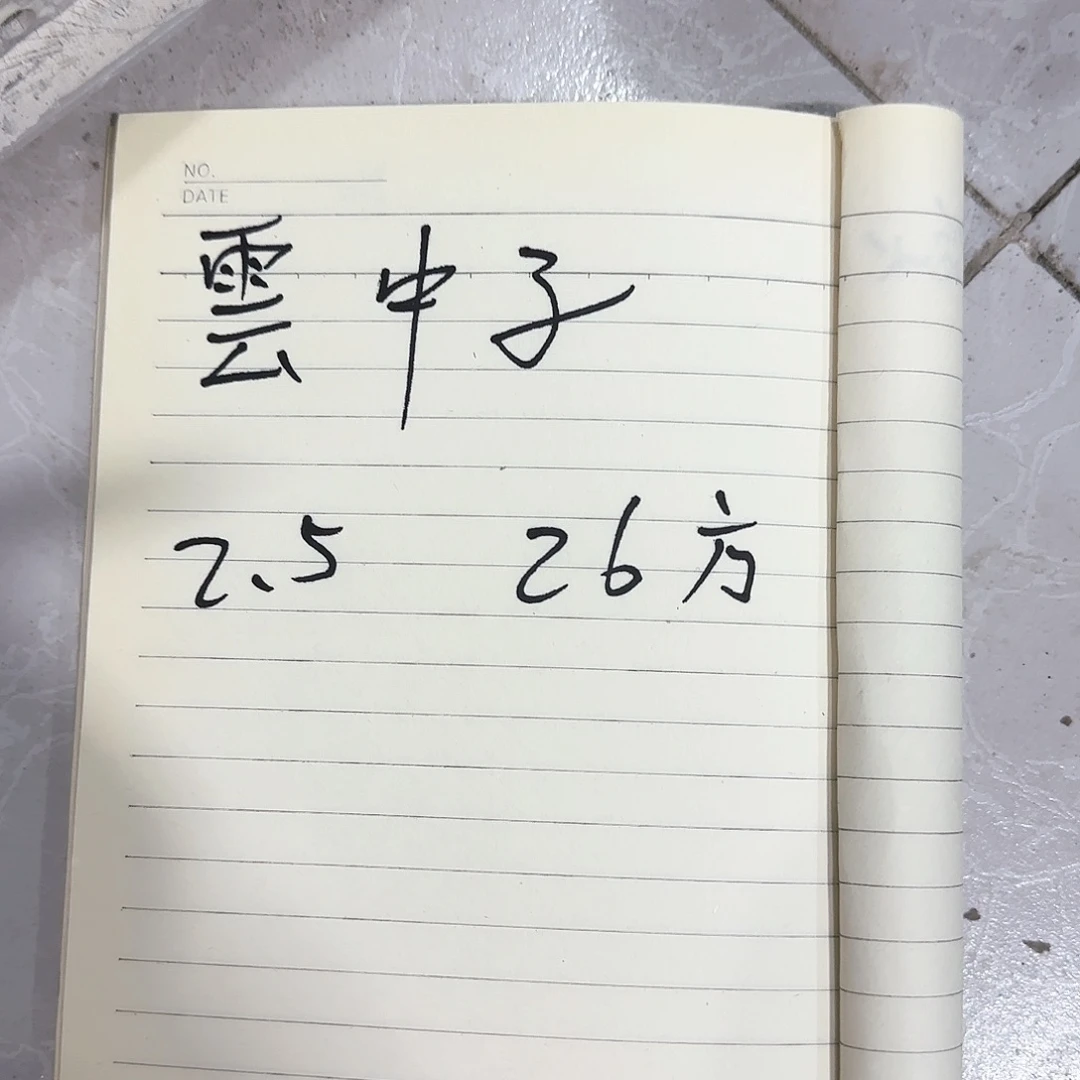 NO.
DATE
雲中子
2.5 26方